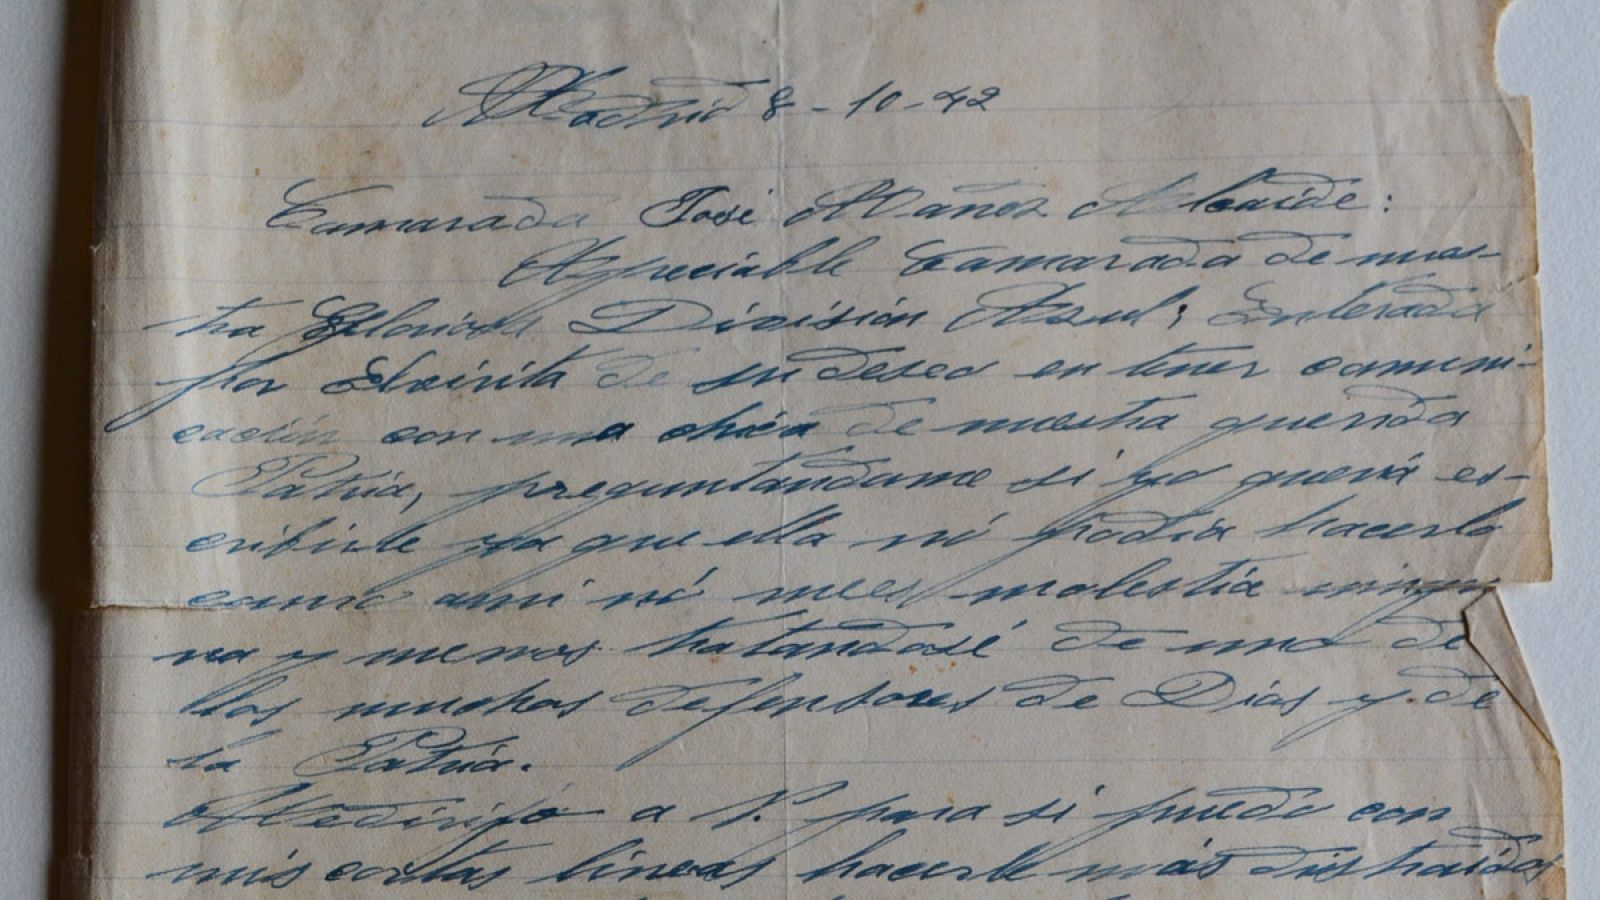 Madrid 8-10-42
Camarada José Mañoz Alcaide:
Apreciable Camarada de nues-
tra Gloriosa División Azul; Enterada
por Elvirita de su deseo en tener comuni-
cación con una chica de nuestra querida
Patria, preguntandome si yo queria es-
cribirle ya que ella no podia hacerlo
como ami no me es molestia ningu
na y menos tratandosé de uno de
llos muchos defensores de Dios y de
la Patria.
Medirijo a V. para si puedo con
mis cortas lineas hacerle más distraidas